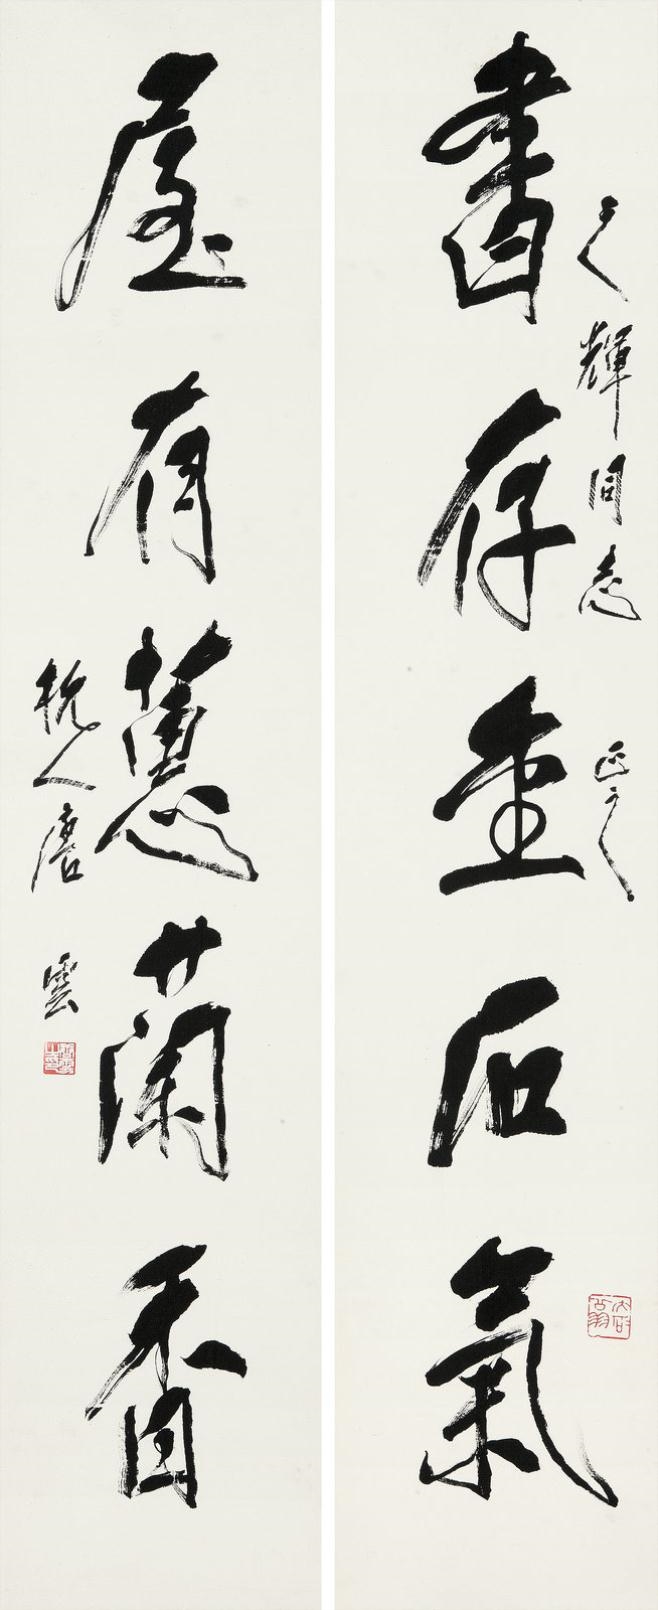 書存金石氣
之輝同志
正之
屋有蕙蘭香
杭人唐雲
大石翁